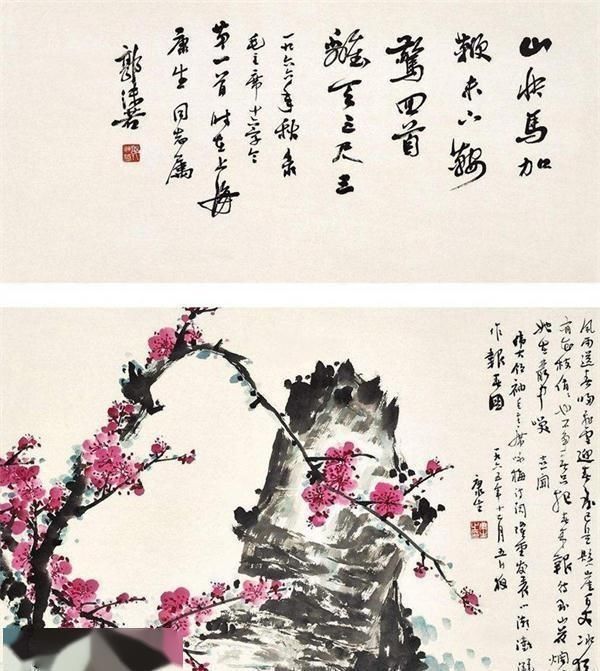 山快馬加
鞭未下鞍
驚回首
離天三尺三
一九六六年秋录
毛主席十六字令
第一首时在上海
康生同志属
郭沫若
风雨送春归飞雪迎春到已是悬崖百丈冰犹
有花枝俏俏也不争春只把春来报待到山花烂
她在丛中笑
伟大领袖毛主席咏梅词
作報春图 一九六五年十二月五日
康生